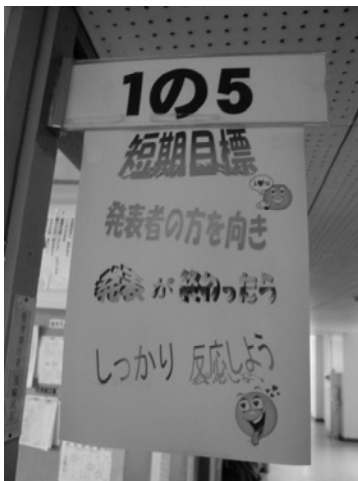 1の5
短期目標
発表者の方を向き
発表 が 終わったら
しっかり 反応しよう